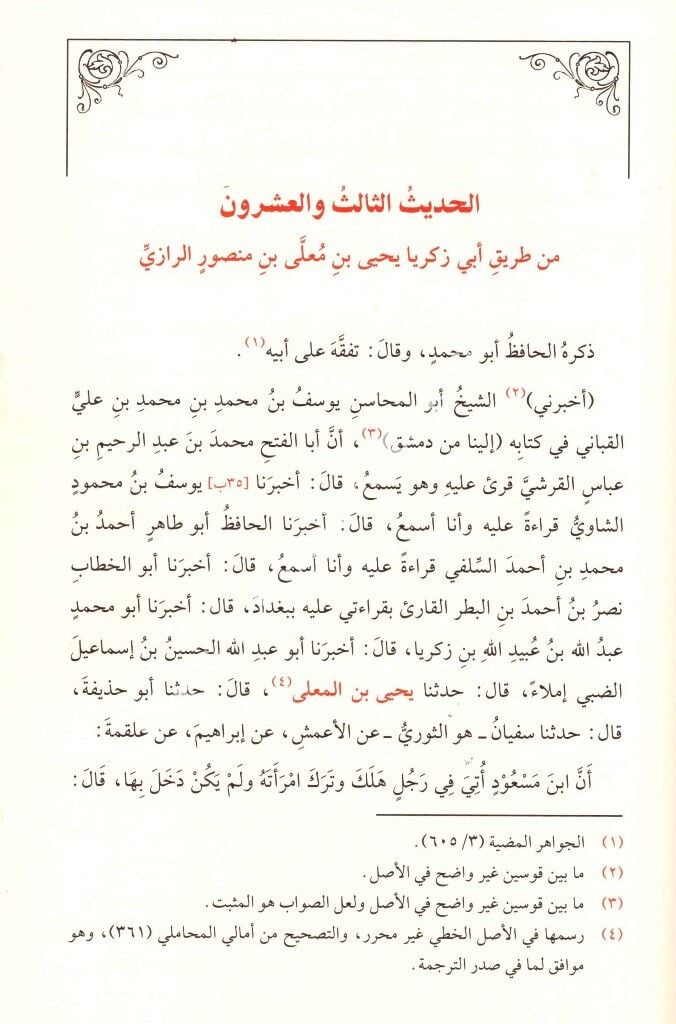 الحديثُ الثالثُ والعشرونَ
من طريقِ أبي زكريا يحيى بنِ مُعلَّى بنِ منصورٍ الرازيِّ
ذكرهُ الحافظُ أبو محمدٍ، وقالَ: تفقَّهَ على أبيه(١).
(أخبرني)(٢) الشيخُ أبو المحاسنِ يوسفُ بنُ محمدِ بنِ محمدِ بنِ عليٍّ
القباني في كتابِه (إلينا من دمشق)(٣)، أنَّ أبا الفتحِ محمدَ بنَ عبدِ الرحيمِ بنِ
عباسٍ القرشيَّ قرئ عليهِ وهو يَسمعُ، قالَ: أخبرَنا [٣٥ب] يوسفُ بنُ محمودٍ
الشاويُّ قراءةً عليه وأنا أسمعُ، قالَ: أخبرَنا الحافظُ أبو طاهرٍ أحمدُ بنُ
محمدِ بنِ أحمدَ السِّلفي قراءةً عليه وأنا أسمعُ، قالَ: أخبرَنا أبو الخطابِ
نصرُ بنُ أحمدَ بنِ البطر القارئ بقراءتي عليه ببغدادَ، قال: أخبرَنا أبو محمدٍ
عبدُ الله بنُ عُبيدِ اللهِ بنِ زكريا، قالَ: أخبرَنا أبو عبدِ الله الحسينُ بنُ إسماعيلَ
الضبي إملاءً، قال: حدثنا يحيى بن المعلى(٤)، قالَ: حدثنا أبو حذيفةَ،
قال: حدثنا سفيانُ ـ هو الثوريُّ ـ عن الأعمشِ، عن إبراهيمَ، عن علقمةَ:
أَنَّ ابنَ مَسْعُوْدٍ أُتِيَ فِي رَجُلٍ هَلَكَ وتَرَكَ امْرَأَتَهُ ولَمْ يَكُنْ دَخَلَ بِهَا، قَالَ:
(١) الجواهر المضية (٣/ ٦٠٥).
(٢) ما بين قوسين غير واضح في الأصل.
(٣) ما بين قوسين غير واضح في الأصل ولعل الصواب هو المثبت.
(٤) رسمها في الأصل الخطي غير محرر، والتصحيح من أمالي المحاملي (٣٦١)، وهو
موافق لما في صدر الترجمة.